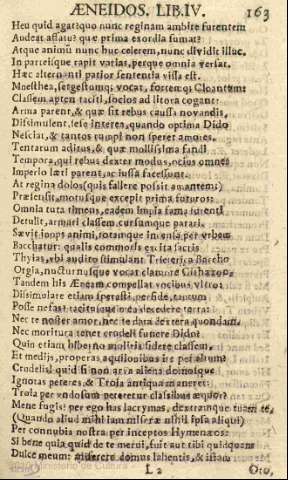 ÆNEIDOS. LIB. IV. 163
Heu quid agat? quo nunc reginam ambire furentem
Audeat affatu? quæ prima exordia sumat?
Atque animũ nunc huc celerem, nunc dividit illuc.
In partesque rapit varias, perque omnia versat.
Hæc alternanti potior sententia visa est.
Mnesthea, sergestumq; vocat, fortemq; Cloantum:
Classem aptent taciti, socios ad litora cogant:
Arma parent, & quæ sit rebus causa novandis,
Dissimulent, sese interea, quando optima Dido
Nesciat, & tantos rumpi non speret amores.
Tentarum aditus, & quæ mollissima fandi
Tempora, qui rebus dexter modus, ocius omnes
Imperio læti parent, ac iussa facessunt.
At regina dolos (quis fallere possit amantem)
Præsensit, motusque excepit prima futuros:
Omnia tuta timens, eadem impia fama furenti
Detulit, armari classem cursumque parari.
Sævit inops animi, totamque incensa per urbem
Bacchatur: qualis commotis excita sacris
Thyias, vbi audito stimulant Trieterica Baccho
Orgia, nocturnusque vocat clamore Cithæron.
Tandem his Æneam compellat vocibus vltro:
Dissimulare etiam sperasti, perfide, tantum
Posse nefas? tacitusque mea decedere terra?
Nec te noster amor, nec te data dextera quondam,
Nec moritura tenet crudeli funere Dido?
Quin etiam hiberno moliris sidere classem,
Et medijs, properas aquilonibus ire per altum?
Crudelis! quid si non arva aliena domosque
Ignotas peteres, & Troia antiqua maneret:
Troia per vndosum peteretur classibus æquor?
Mene fugis? per ego has lacrymas, dextramque tuam te,
(Quando aliud mihi iam miseræ nihil ipsa aliqui)
Per connubia nostra per inceptos Hymenæos:
Si bene quid de te merui, fuit aut tibi quidquam
Dulce meum: miserere domus labentis, & istam
L 2 Oro,
Ministerio de Cultura